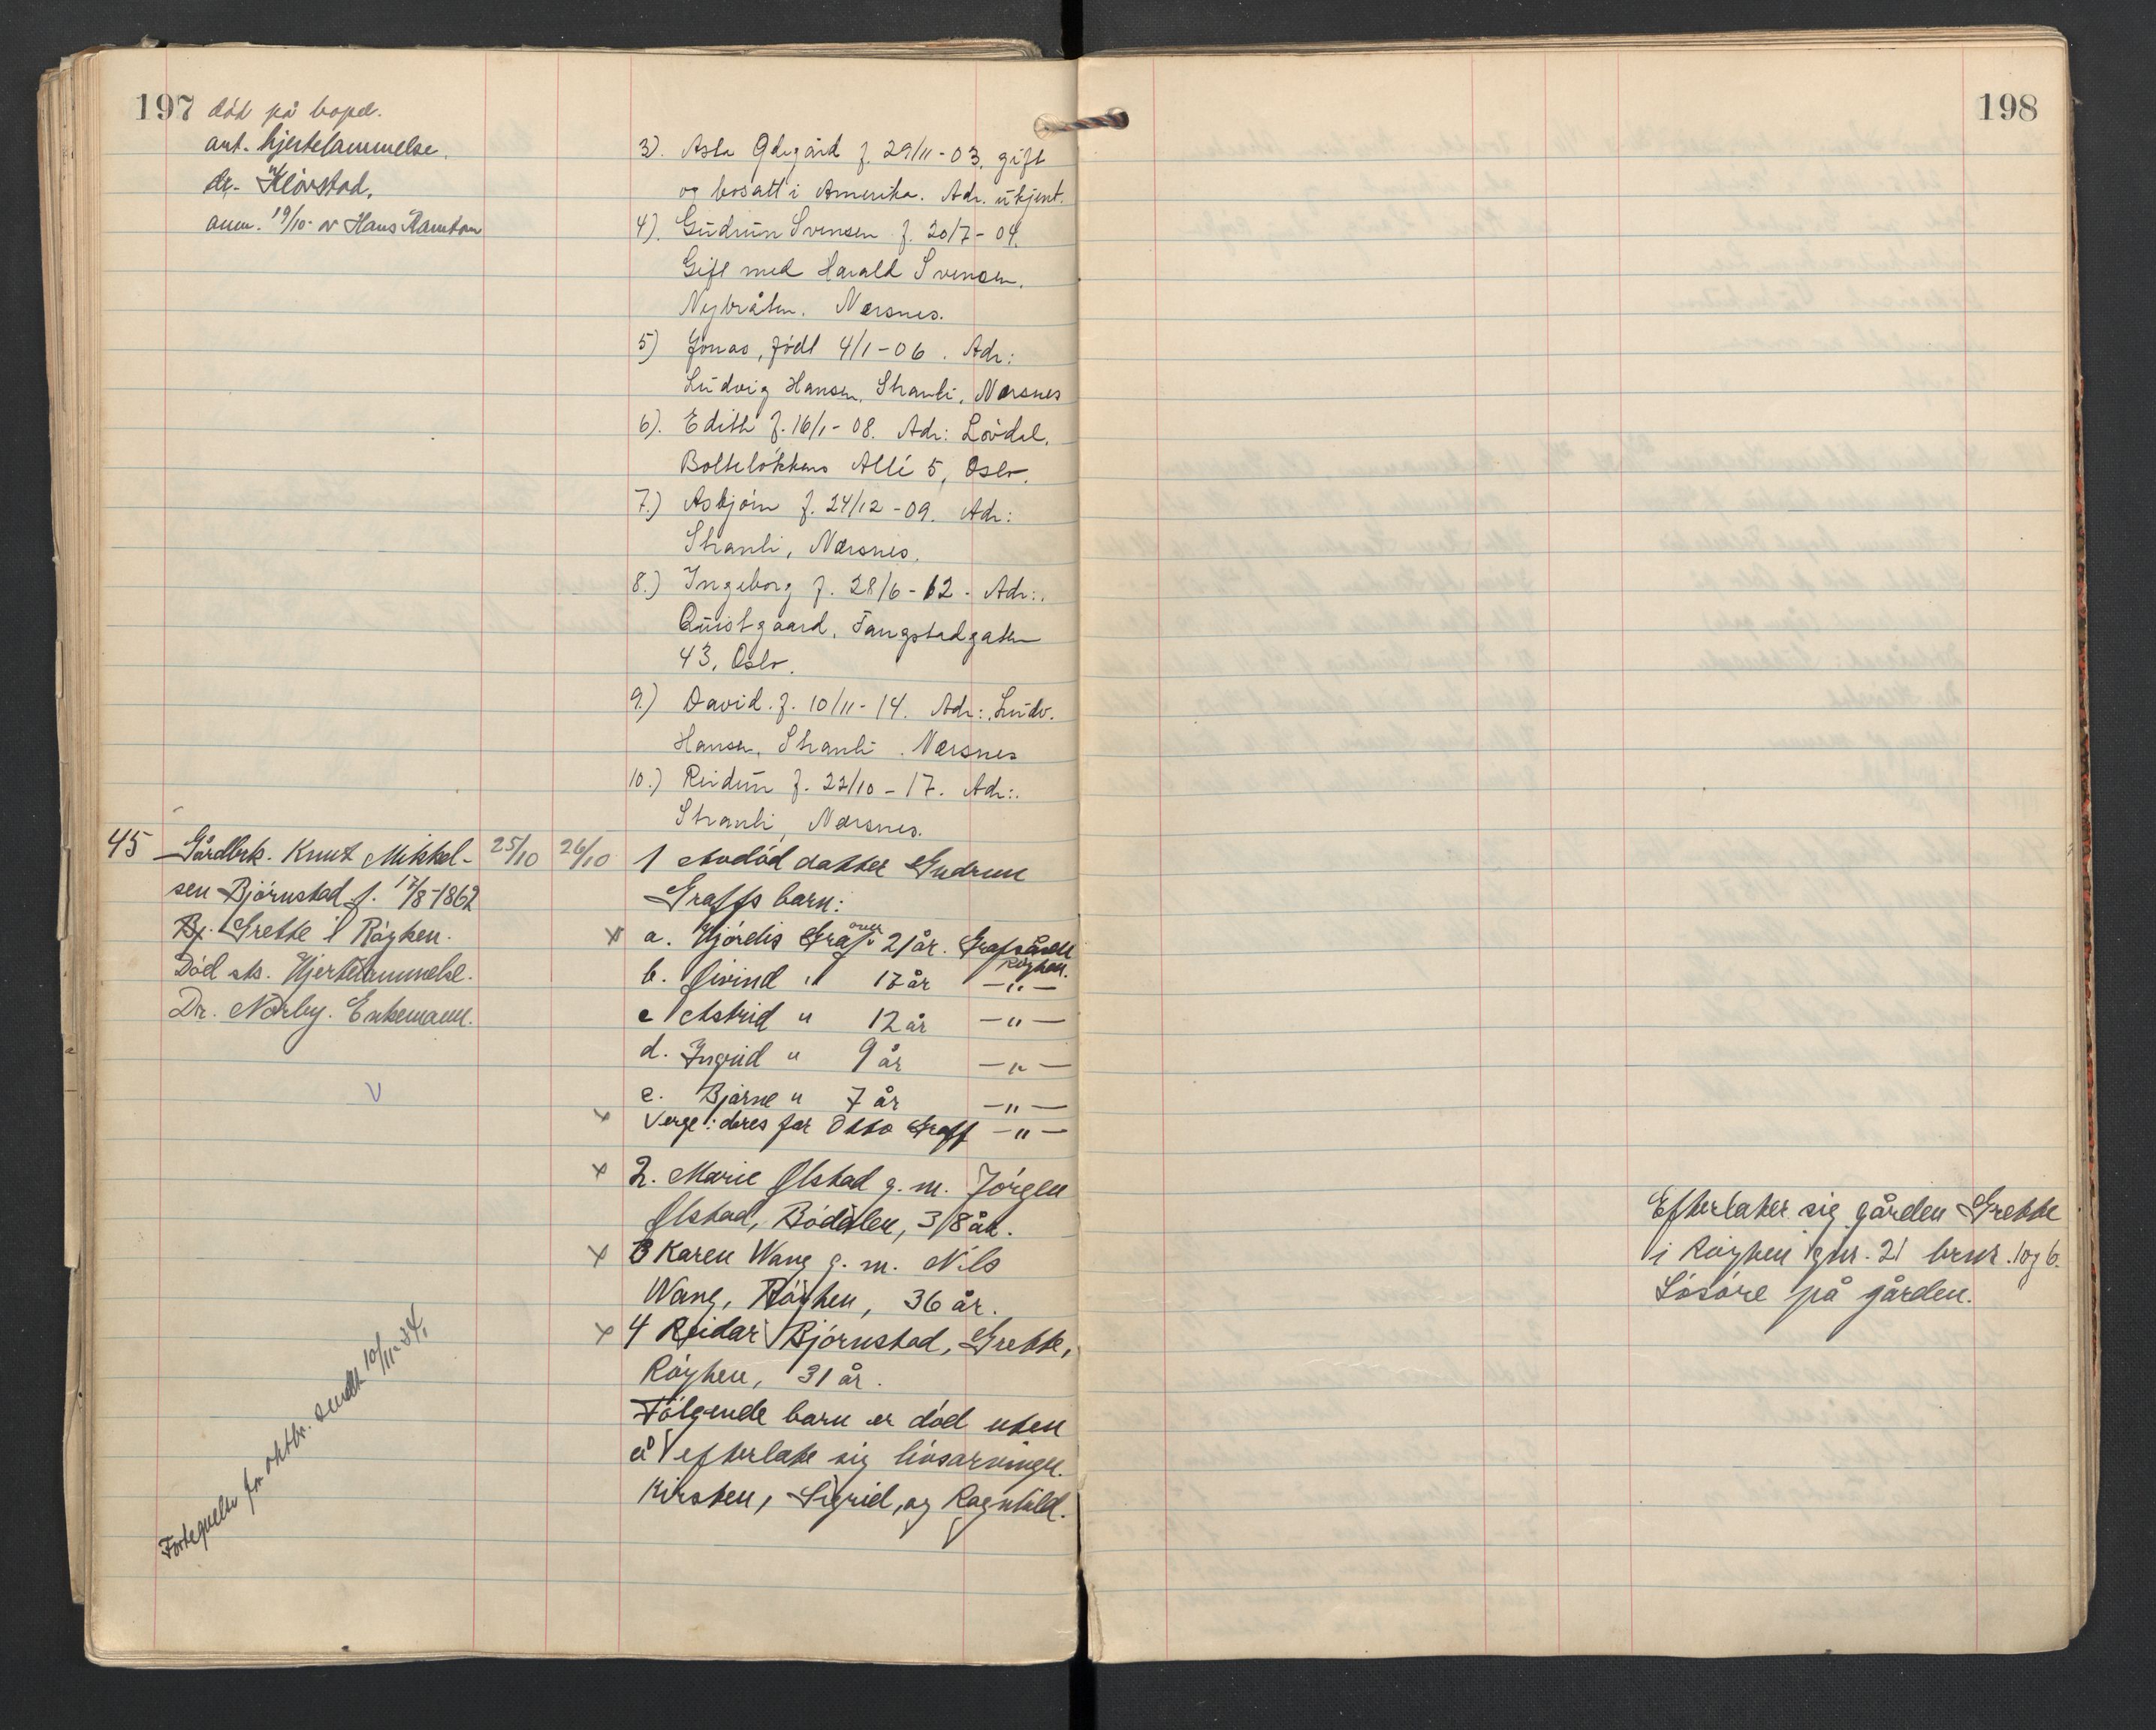 197
død på bopel.
ant. hjertelammelse.
dr. Kløvstad.
anm. 19/10 av Hans
3). Asta Ødegård f. 29/11-03, gift
og bosatt i Amerika. Adr. ukjent.
4). Gudrun Svensen f. 20/7-04.
Gift med Harald Svensen.
Nybråten. Nærsnes.
5) Jonas, født 4/1-06. Adr:
Ludvig Hansen, Stranli, Nærsnes
6). Edith f. 16/1-08. Adr: Lövdal.
Bolteløkkens Allé 5, Oslo.
7.) Asbjørn f. 24/12-09. Adr:
Stranli, Nærsnes.
8.) Ingeborg f. 28/6-12. Adr:.
Quistgaard, Tangstadgaten
43, Oslo.
9.) David. f. 10/11-14. Adr:. Ludv.
Hansen, Stranli. Nærsnes
10.) Reidun f. 22/10-17. Adr:.
Stranli, Nærsnes.
45 Gårdbrk. Knut Mikkel-
sen Bjørnstad f. 17/8-1862
Bj. Grette i Røyken.
Død sts. Hjertelammelse.
Dr. Nørby. Enkemann.
V
25/10 26/10
1 Avdød datter Gudrun
Graffs barn:
x a. Hjørdis Graff over 21 år. Grafsåsen
Røyken.
b. Øivind " 17 år —"—
c Astrid " 12 år —"—
d. Ingrid " 9 år —"—
e. Bjarne " 7 år —"—
x Verge: deres far Otto Graff —"—
x 2. Marie Ølstad g. m. Jørgen
Ølstad, Bødalen, 38 år.
x 3 Karen Wang g. m. Nils
Wang, Røyken, 36 år.
x 4 Reidar Bjørnstad, Grette,
Røyken, 31 år.
Følgende barn er død uten
å efterlate sig livsarvinger.
Kirsten, Sigrid, og Ragnhild.
Fortegnelse for oktbr. sendt 10/11-34.
198
Efterlater sig gården Grette
i Røyken gnr. 21 brnr. 1 og 6.
Løsøre på gården.